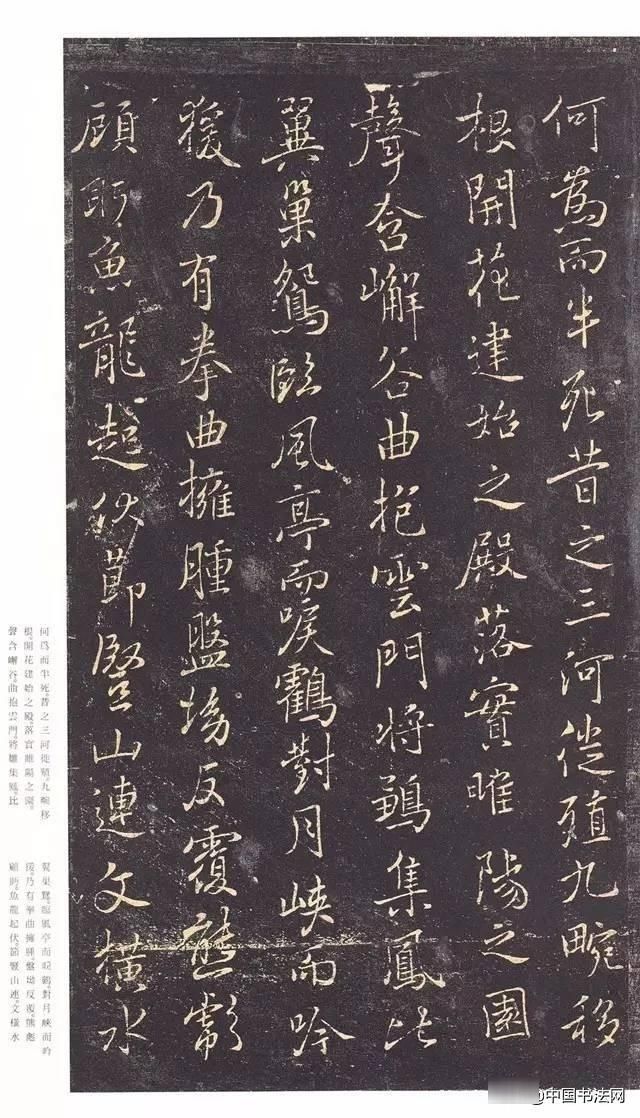 何為而半死昔之三河徙殖九畹移
根開花建始之殿落實睢陽之園
聲含嶰谷曲抱雲門將鶵集鳳比
翼巢鴛臨風亭而唳鶴對月峽而吟
猨乃有拳曲擁腫盤坳反覆熊彪
顧盻魚龍起伏節豎山連文橫水
何爲而半死。昔之三河徙殖。九畹移
根。開花建始之殿。落實睢陽之園。
聲含嶰谷。曲抱雲門。將雛集鳳。比
翼巢鴛。臨風亭而唳鶴。對月峽而吟
猨。乃有拳曲擁腫。盤坳反覆。熊彪
顧盻。魚龍起伏。節豎山連。文橫水
@中国书法网